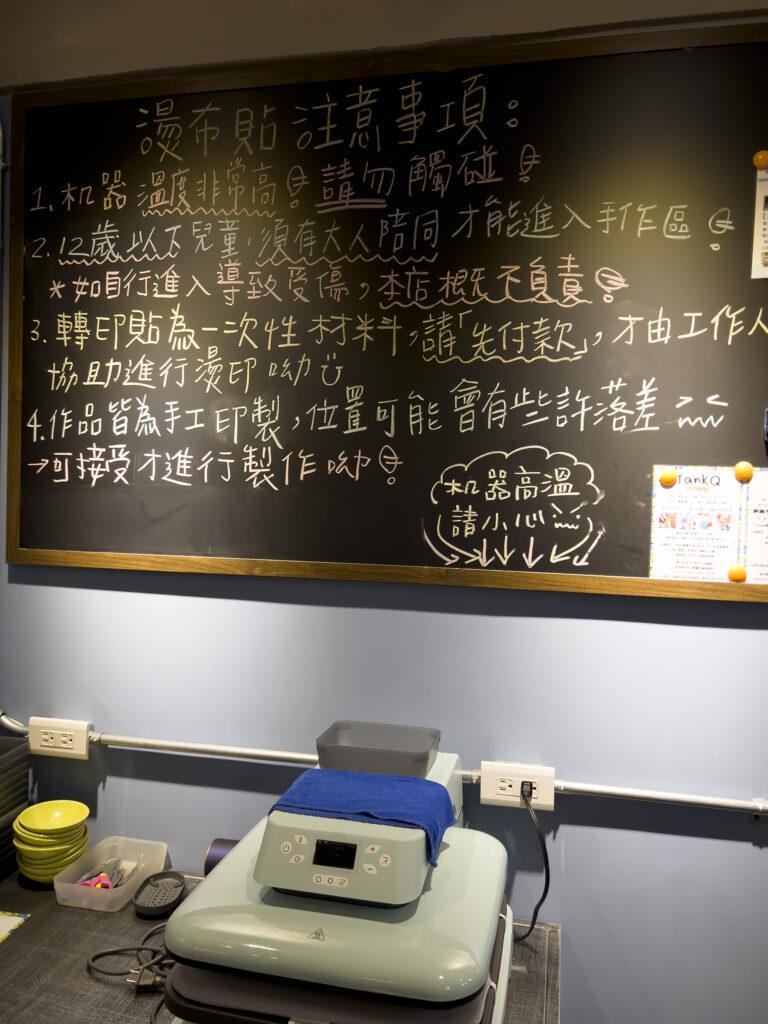 燙布貼 注意事項:
1. 机器溫度非常高! 請勿觸碰!
2. 12歲以下兒童,須有大人陪同 才能進入手作區!
*如自行進入導致受傷,本店概不負責!
3. 轉印貼為一次性材料,請「先付款」,才由工作人
協助進行燙印呦
4. 作品皆為手工印製,位置可能會有些許落差
→可接受才進行製作呦!
机器高溫
請小心
TankQ